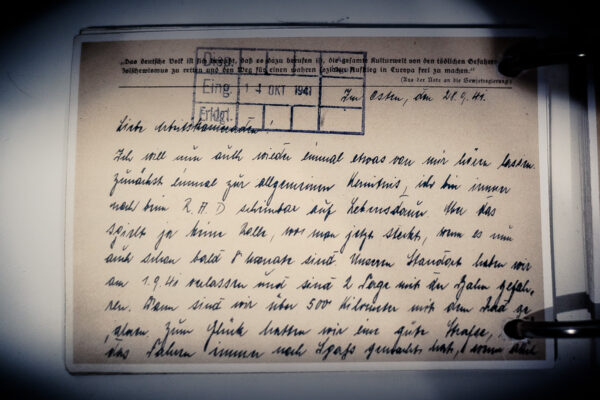 „Das deutsche Volk ist sich bewußt, daß es dazu berufen ist, die gesamte Kulturwelt von den tödlichen Gefahren
Bolschewismus zu retten und den Weg für einen wahren sozialen Aufstieg in Europa frei zu machen.“
(Aus der Note an die Sowjetregierung)
Eing. 14 OKT 1941
Erldgt.
Im Osten, den 21.9.41.
Liebe Arbeitskameraden!
Ich will nun auch wieder einmal etwas von mir hören lassen.
Zunächst einmal zur allgemeinen Kenntnis, ich bin immer
noch beim R.A.D scheinbar auf Lebensdauer. Aber das
spielt ja keine Rolle, wo man jetzt steckt, wenn es nun
auch schon bald 8 Monate sind. Unseren Standort haben wir
am 1.9.41 verlassen und sind 2 Tage mit der Bahn gefah-
ren. Dann sind wir über 500 Kilometer mit dem Rad ge
zum Glück hatten wir eine gute Straße,
das Fahren immer noch Spaß gemacht hat, wenn auch